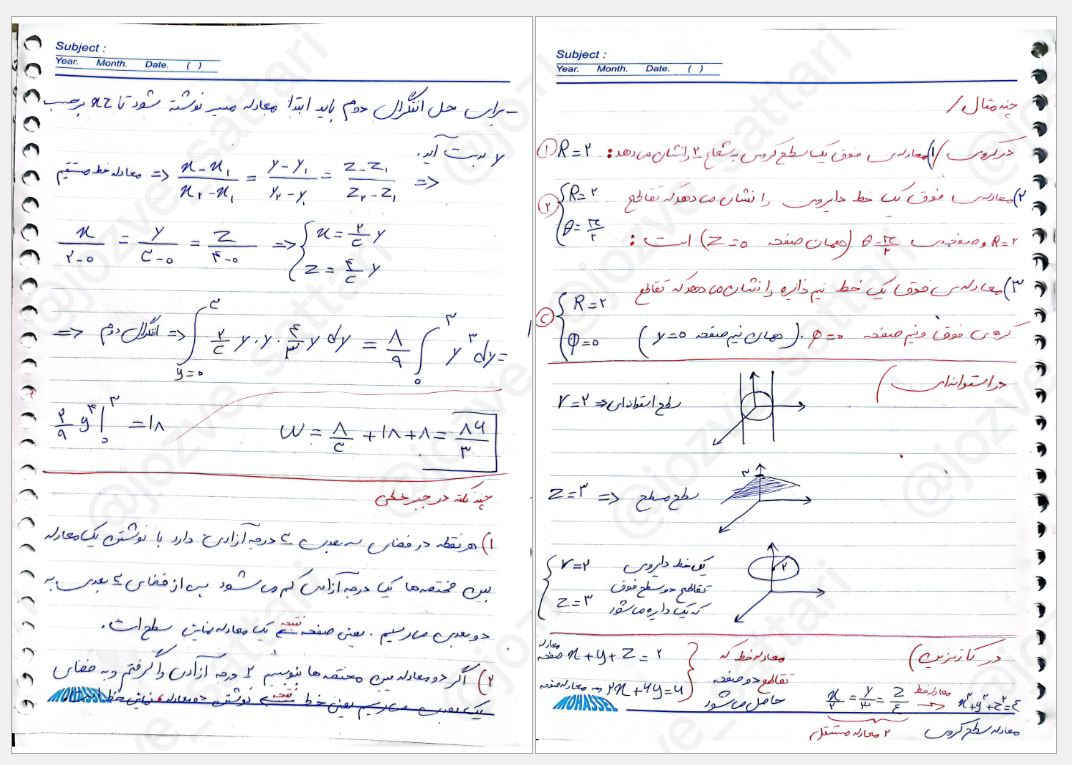 Subject :
Year. Month. Date. ( )
- برای حل انتگرال دوم باید ابتدا معادله مسیر نوشته شود تا x,z برحسب
y بدست آید.
معادله خط مستقیم ⇒ (x-x₁)/(x₂-x₁) = (y-y₁)/(y₂-y₁) = (z-z₁)/(z₂-z₁) ⇒
x/(۲-۰) = y/(۳-۰) = z/(۴-۰) ⇒ { x = ۲/۳ y
z = ۴/۳ y
⇒ انتگرال دوم ⇒ ∫_{y=۰}^{۳} ۲/۳ y . y . ۴/۳ y dy = ۸/۹ ∫_۰^۳ y^۳ dy =
۲/۹ y^۴ |_۰^۳ = ۱۸
W = ۸/۳ + ۱۸ + ۸ = ۸۶/۳
چند نکته در جبر خطی
۱) هر نقطه در فضای سه بعدی ۳ درجه آزادی دارد با نوشتن یک معادله
بین مختصه‌ها یک درجه آزادی کم می‌شود پس از فضای ۳ بعدی به
دو بعدی می‌رسیم . یعنی صفحه نتیجه یک معادله نمایش سطح است.
۲) اگر دو معادله بین مختصه‌ها بنویسیم ۲ درجه آزادی را گرفتیم و به فضای
یک بعدی می‌رسیم یعنی خط نتیجه نوشتن دو معادله، نمایش خط است
MOHASSEL
Subject :
Year. Month. Date. ( )
چند مثال /
در کروی / ۱) معادله‌ی فوق یک سطح کروی به شعاع ۲ را نشان می‌دهد : R=۲ ①
۲) معادله‌ی فوق یک خط دایروی را نشان می‌دهد که تقاطع { R=۲ ②
R=۲ و صفحه‌ی θ=π/۲ (همان صفحه z=۰) است : θ=π/۲
۳) معادله‌ی فوق یک خط نیم دایره را نشان می‌دهد که تقاطع { R=۲ ③
کره‌ی فوق و نیم صفحه φ=۰ . (همان نیم صفحه y=۰) φ=۰
در استوانه‌ای )
r=۲ ⇒ سطح استوانه‌ای
z=۳ ⇒ سطح مسطح
۳
{ r=۲ یک خط دایروی
تقاطع دو سطح فوق
z=۳ که یک دایره می‌شود
۲
در کارتزین )
معادله صفحه x+y+z=۲
معادله صفحه ⇐ ۲x+۴y=۴
معادله خط که
تقاطع دو صفحه
حاصل می‌شود
x/۲ = y/۳ = z/۴ معادله خط
۲ معادله مستقل
x²+y²+z²=۴
معادله سطح کروی
MOHASSEL
@jozve_sattari